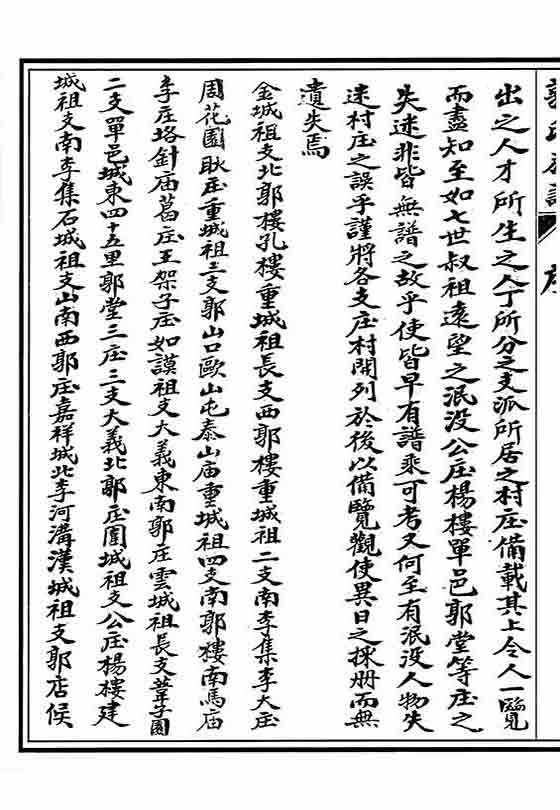 郭氏族譜 序
出之人才所生之人丁所分之支派所居之村庄備載其上令人一覽
而盡知至如七世叔祖遠望之泯没公庄楊樓單邑郭堂等庄之
失迷非皆無譜之故乎使皆早有譜乘可考又何至有泯没人物失
迷村庄之誤乎謹將各支庄村開列於後以備覽觀使異日之採册而無
遺失焉
金城祖支北郭樓孔樓重城祖長支西郭樓重城祖二支南李集李大庄
周花園耿庄重城祖三支郭山口歐山屯泰山庙重城祖四支南郭樓南馬庙
李庄塔針庙葛庄王架子庄如謨祖支大義東南郭庄雲城祖長支葦子園
二支單邑城東四十五里郭堂三庄三支大義北郭庄圓城祖支公庄楊樓建
城祖支南李集石城祖支山南西郭庄嘉祥城北李河溝漢城祖支郭店侯